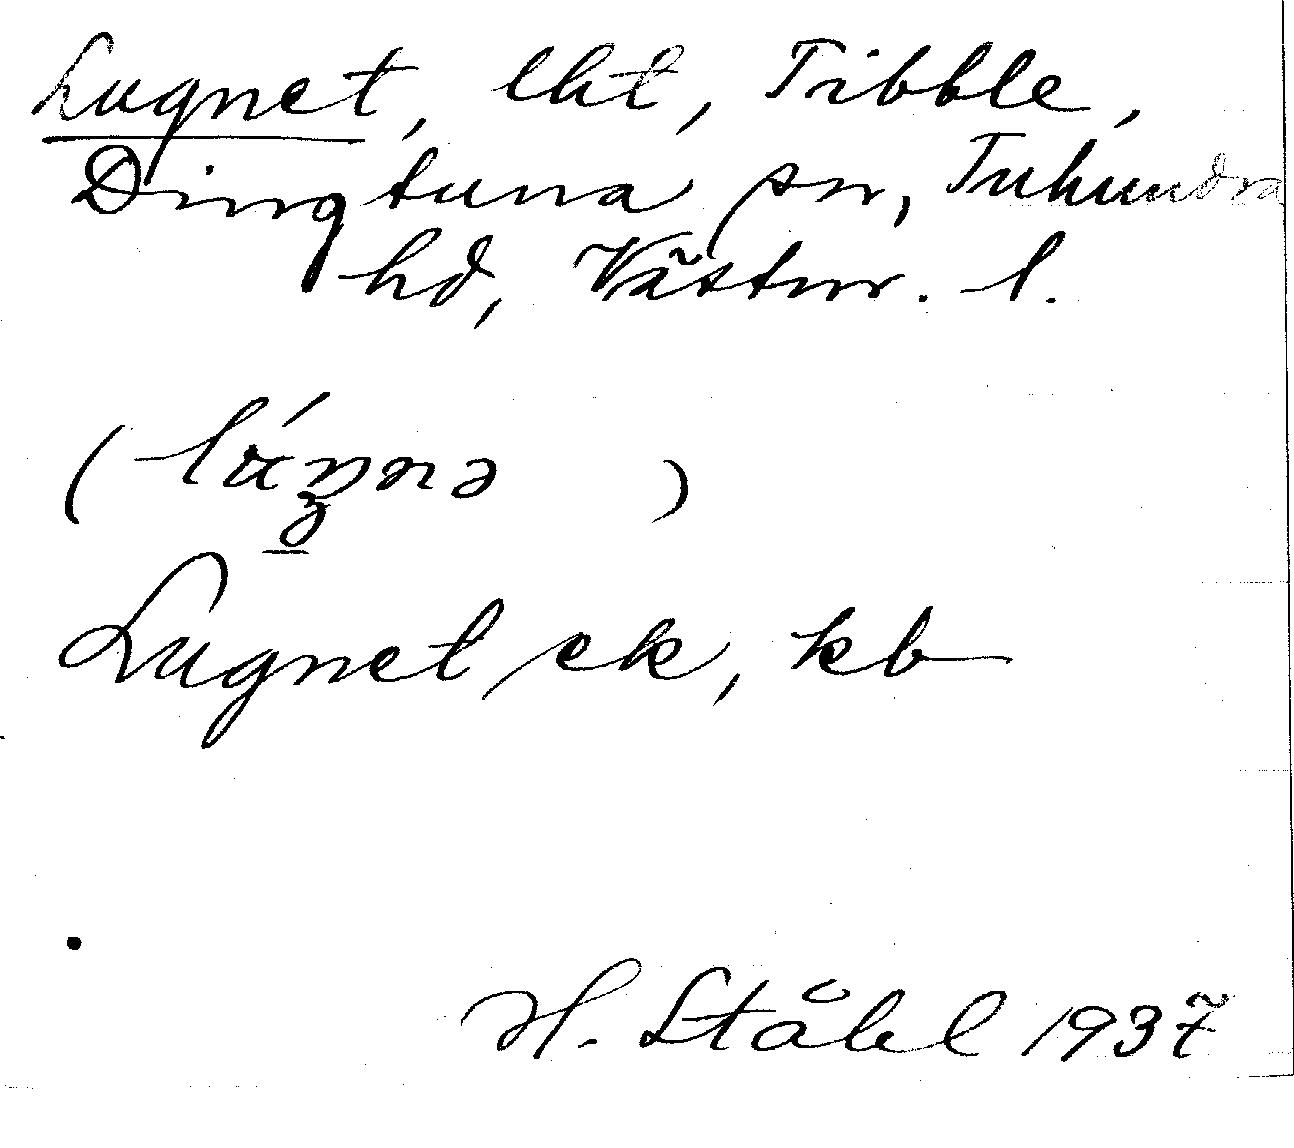 Lugnet, lht, Tibble,
Dingtuna sn, Tuhundra
hd, Västm. l.
Lugnet ek, kb
H. Ståhl 1937